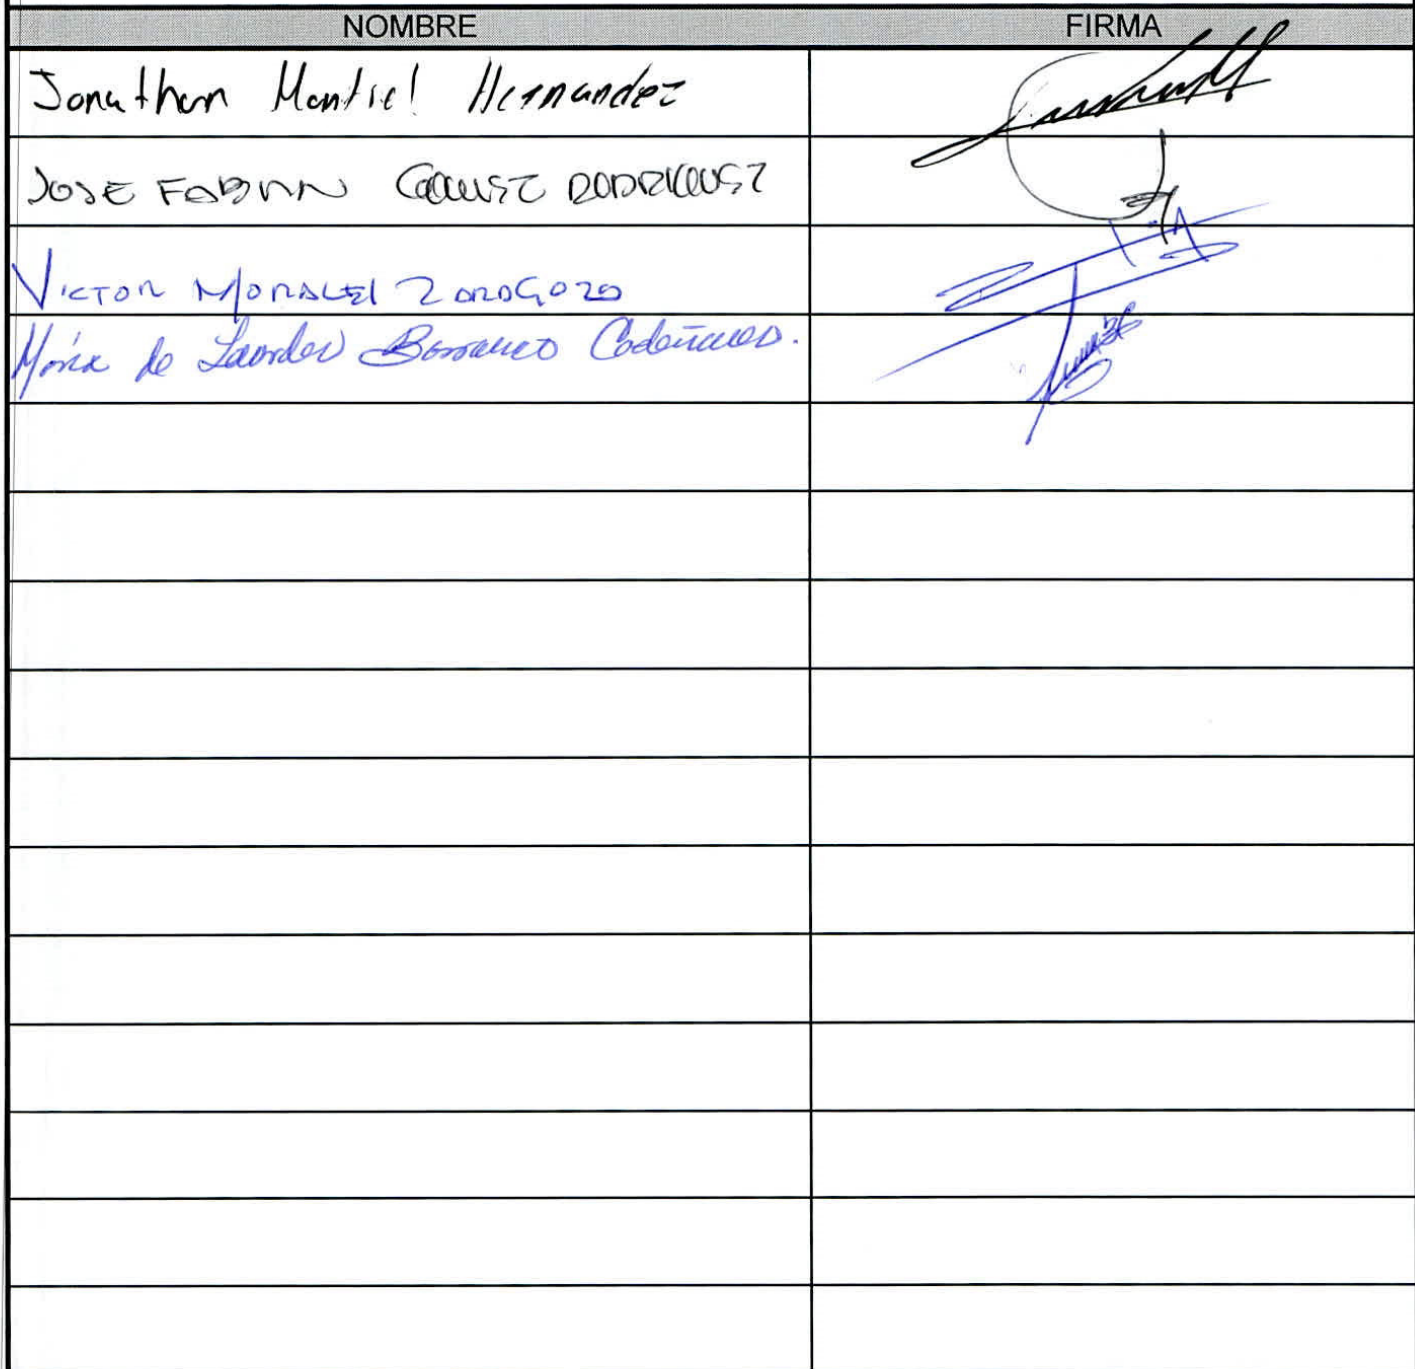 NOMBRE FIRMA
Jonathan Montiel Hernandez
JOSE FABIAN RODRIGUEZ
VICTOR MORALES ZARAGOZA
María de Lourdes Barranco